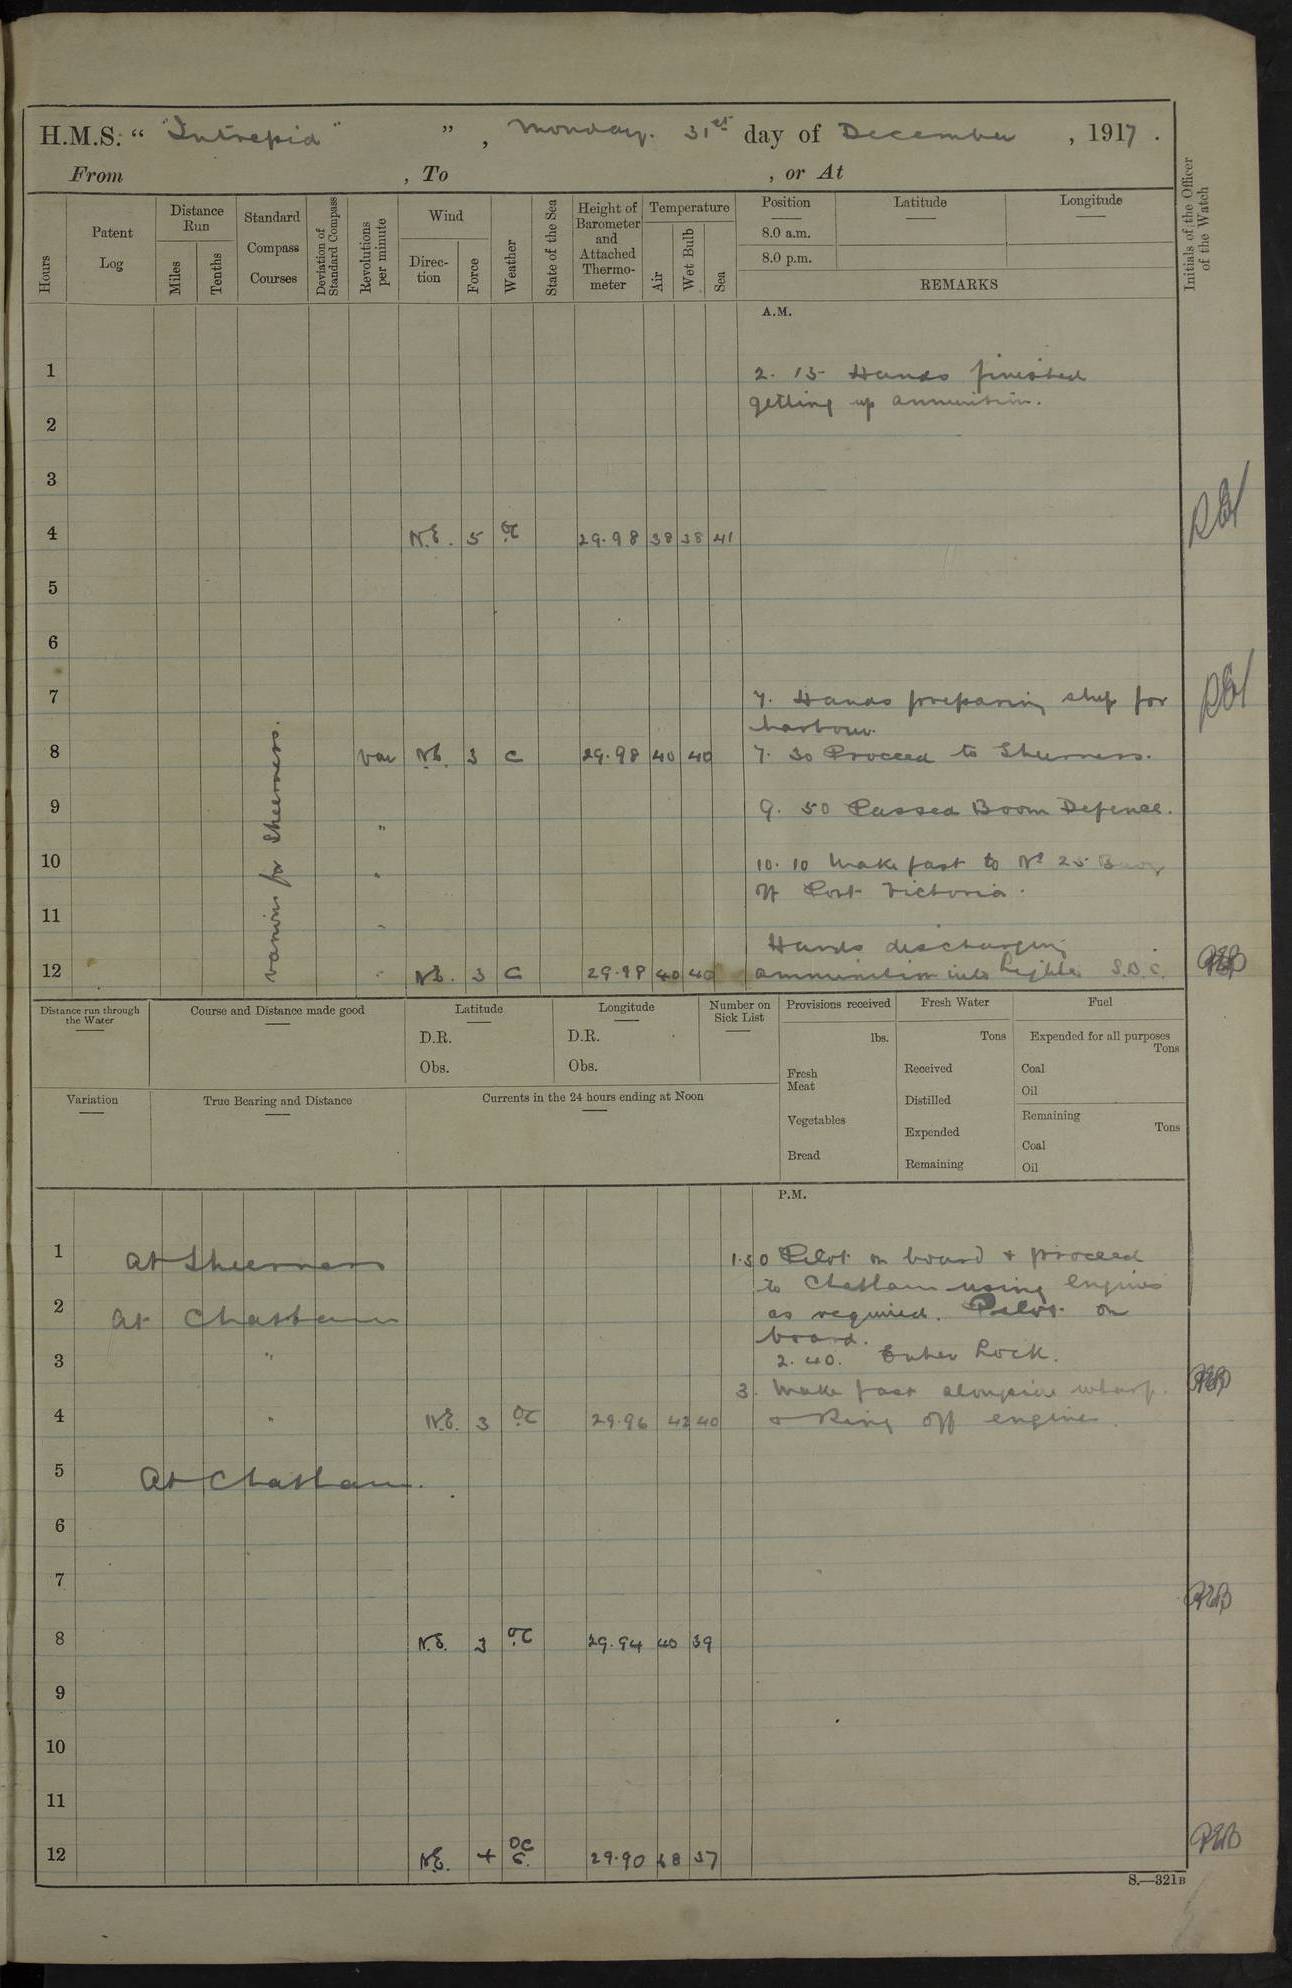 H.M.S. " "Intrepid" ", Monday. 31st day of December, 1917.
From , To , or At
Hours
Patent Log
Distance Run
Miles
Tenths
Standard Compass Courses
Deviation of Standard Compass
Revolutions per minute
Wind
Direction
Force
Weather
State of the Sea
Height of Barometer and Attached Thermometer
Temperature
Air
Wet Bulb
Sea
Position
8.0 a.m.
8.0 p.m.
Latitude
Longitude
REMARKS
Initials of the Officer of the Watch
A.M.
1 2. 15 Hands finished
getting up ammunition.
2
3
4 N.E. 5 oc 29.98 38 38 41
5
6
7 7. Hands preparing ship for
harbour.
8 Var N.E. 3 c 29.98 40 40 7. 30 Proceed to Sheerness.
various for Sheerness.
9 " 9. 50 Passed Boom Defence.
10 " 10. 10 Make fast to No 25 Buoy
off Port Victoria.
11 "
Hands discharging
12 " N.E. 3 C 29.98 40 40 ammunition into Lighter S.B.C.
Distance run through the Water
Course and Distance made good
Latitude
D.R.
Obs.
Longitude
D.R.
Obs.
Number on Sick List
Provisions received
lbs.
Fresh Meat
Vegetables
Bread
Fresh Water
Tons
Received
Distilled
Expended
Remaining
Fuel
Expended for all purposes
Tons
Coal
Oil
Remaining
Tons
Coal
Oil
Variation
True Bearing and Distance
Currents in the 24 hours ending at Noon
P.M.
1 At Sheerness 1.30 Pilot on board & proceed
to Chatham using Engines
2 At Chatham as required. Pilot on
board.
3 " 2. 40. Enter Lock.
3. Make fast alongside wharf.
4 " N.E. 3 oc 29.96 42 40 & Ring off engines.
5 At Chatham.
6
7
8 N.E. 3 oc 29.94 40 39
9
10
11
12 N.E. 4 oc 29.90 38 37
S.—321B